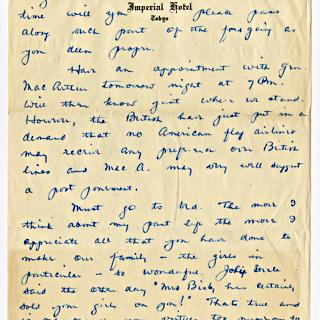 Imperial Hotel
Tokyo
time will you please pass
along such part of the foregoing as
you deem proper.
Have an appointment with Gen.
MacArthur tomorrow night at 7 PM.
Will then know just where we stand.
However, the British have just put in a
demand that no American flag airlines
may receive any preference over British
lines and Mac A. may very well suggest
a postponement.
Must go to bed. The more I
think about my past life the more I
appreciate all that you have done to
make our family - the girls in
particular - so wonderful.
said the other day "Mrs has certainly
sold your girls on you!" Thats true and